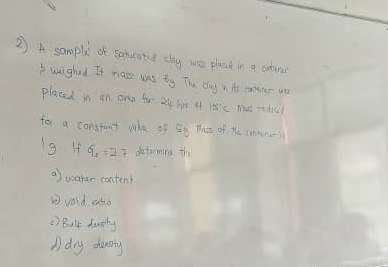 2) A sample of saturated clay was placed in a container
& weighed. It mass was 6g The clay in its container was
placed in an oven for 24 hrs at 105°c mass reduced
to a constant value of 5g Mass of the container is
1g If Gs = 2.7 determine the
a) water content
b) void ratio
c) Bulk density
d) dry density